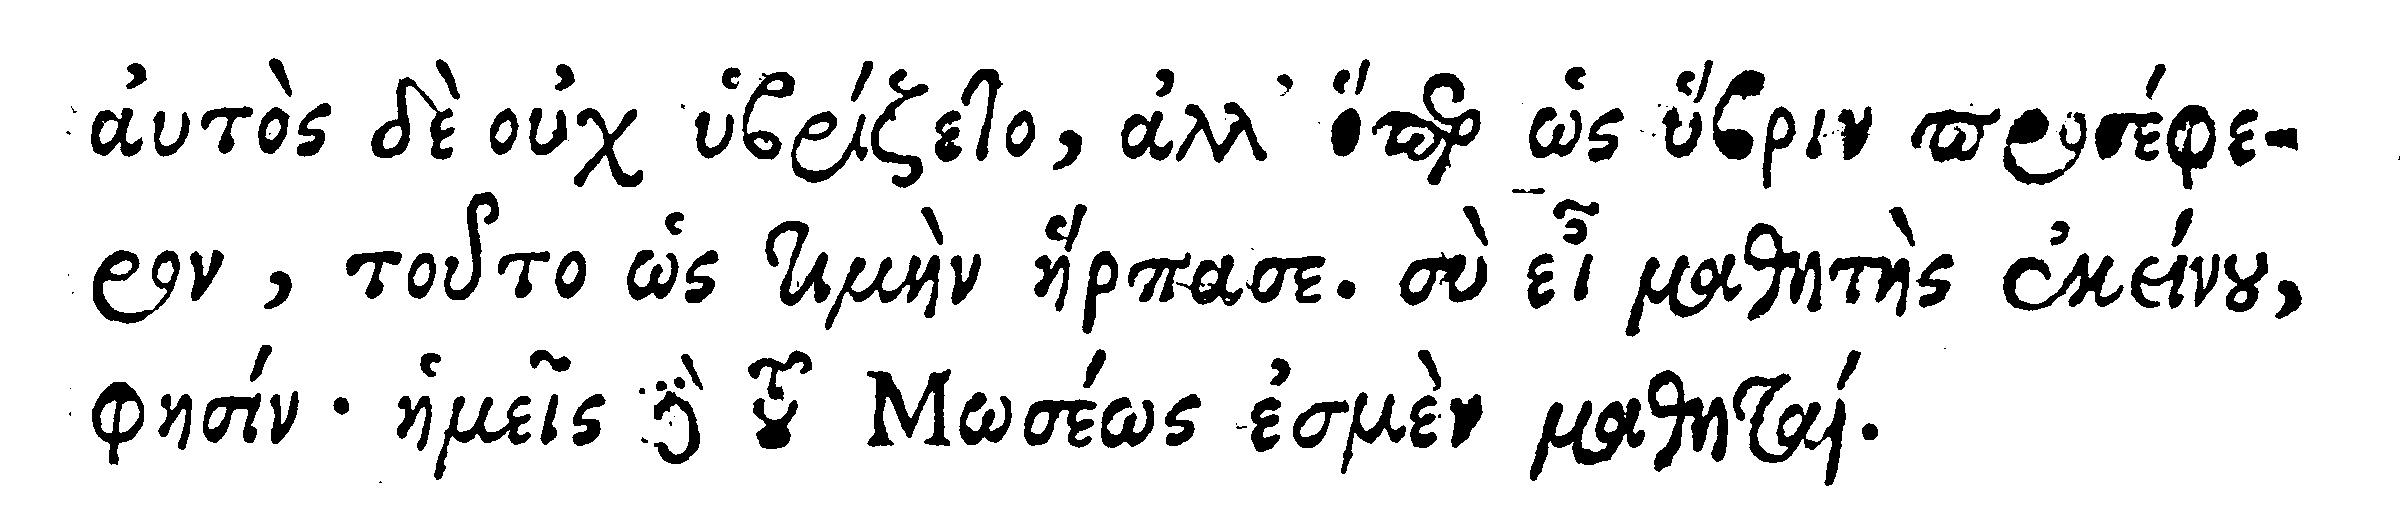 αὐτὸς δὲ οὐχ ὑβρίζετο, ἀλλ' ὅπερ ὡς ὕβριν προσέφε-
ρον, τοῦτο ὡς τιμὴν ἥρπασε. σὺ εἶ μαθητὴς ἐκείνου,
φησίν· ἡμεῖς δὲ τοῦ Μωσέως ἐσμὲν μαθηταί.